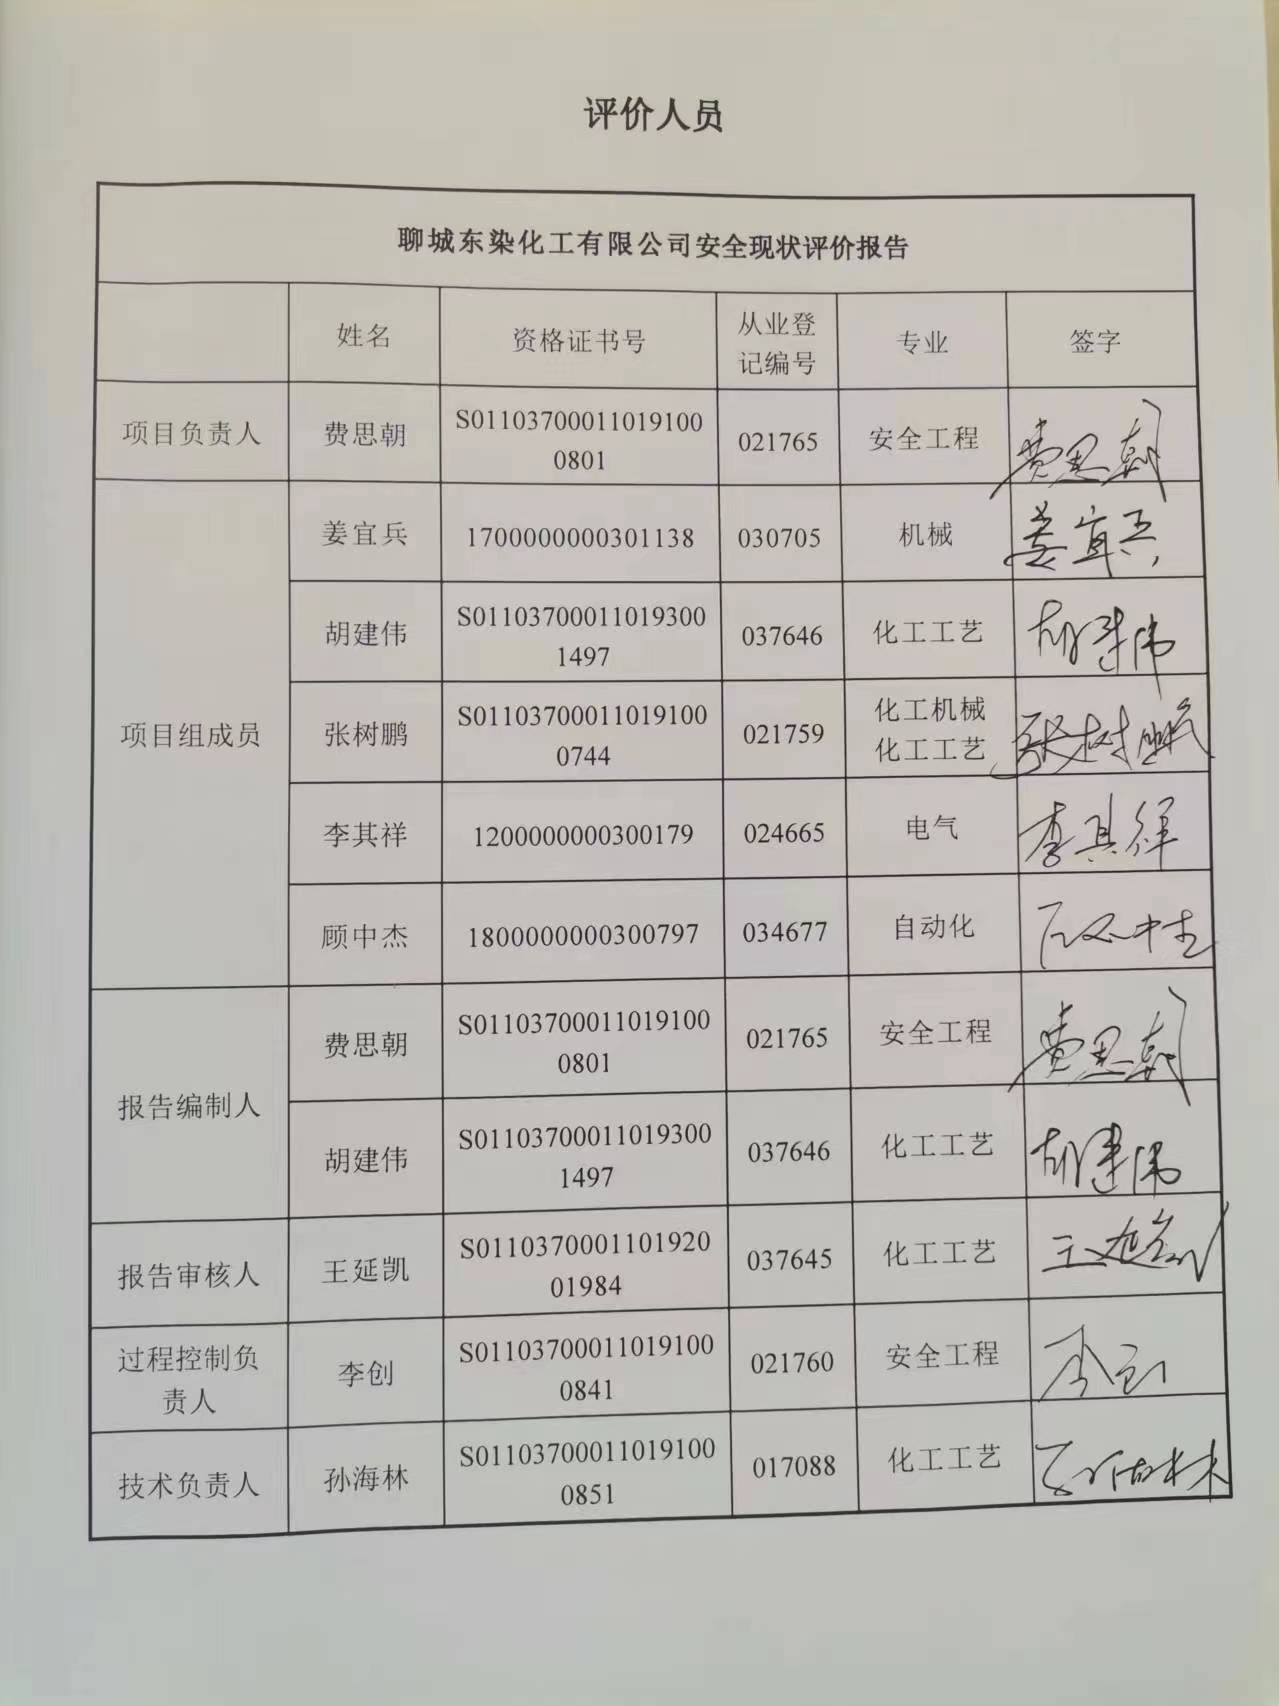 评价人员
聊城东染化工有限公司安全现状评价报告
姓名
资格证书号
从业登
记编号
专业
签字
项目负责人
费思朝
S01103700011019100
0801
021765
安全工程
费思朝
项目组成员
姜宜兵
1700000000301138
030705
机械
姜宜兵
胡建伟
S01103700011019300
1497
037646
化工工艺
胡建伟
张树鹏
S01103700011019100
0744
021759
化工机械
化工工艺
张树鹏
李其祥
1200000000300179
024665
电气
李其祥
顾中杰
1800000000300797
034677
自动化
顾中杰
报告编制人
费思朝
S01103700011019100
0801
021765
安全工程
费思朝
胡建伟
S01103700011019300
1497
037646
化工工艺
胡建伟
报告审核人
王延凯
S0110370001101920
01984
037645
化工工艺
王延凯
过程控制负
责人
李创
S01103700011019100
0841
021760
安全工程
李创
技术负责人
孙海林
S01103700011019100
0851
017088
化工工艺
孙海林